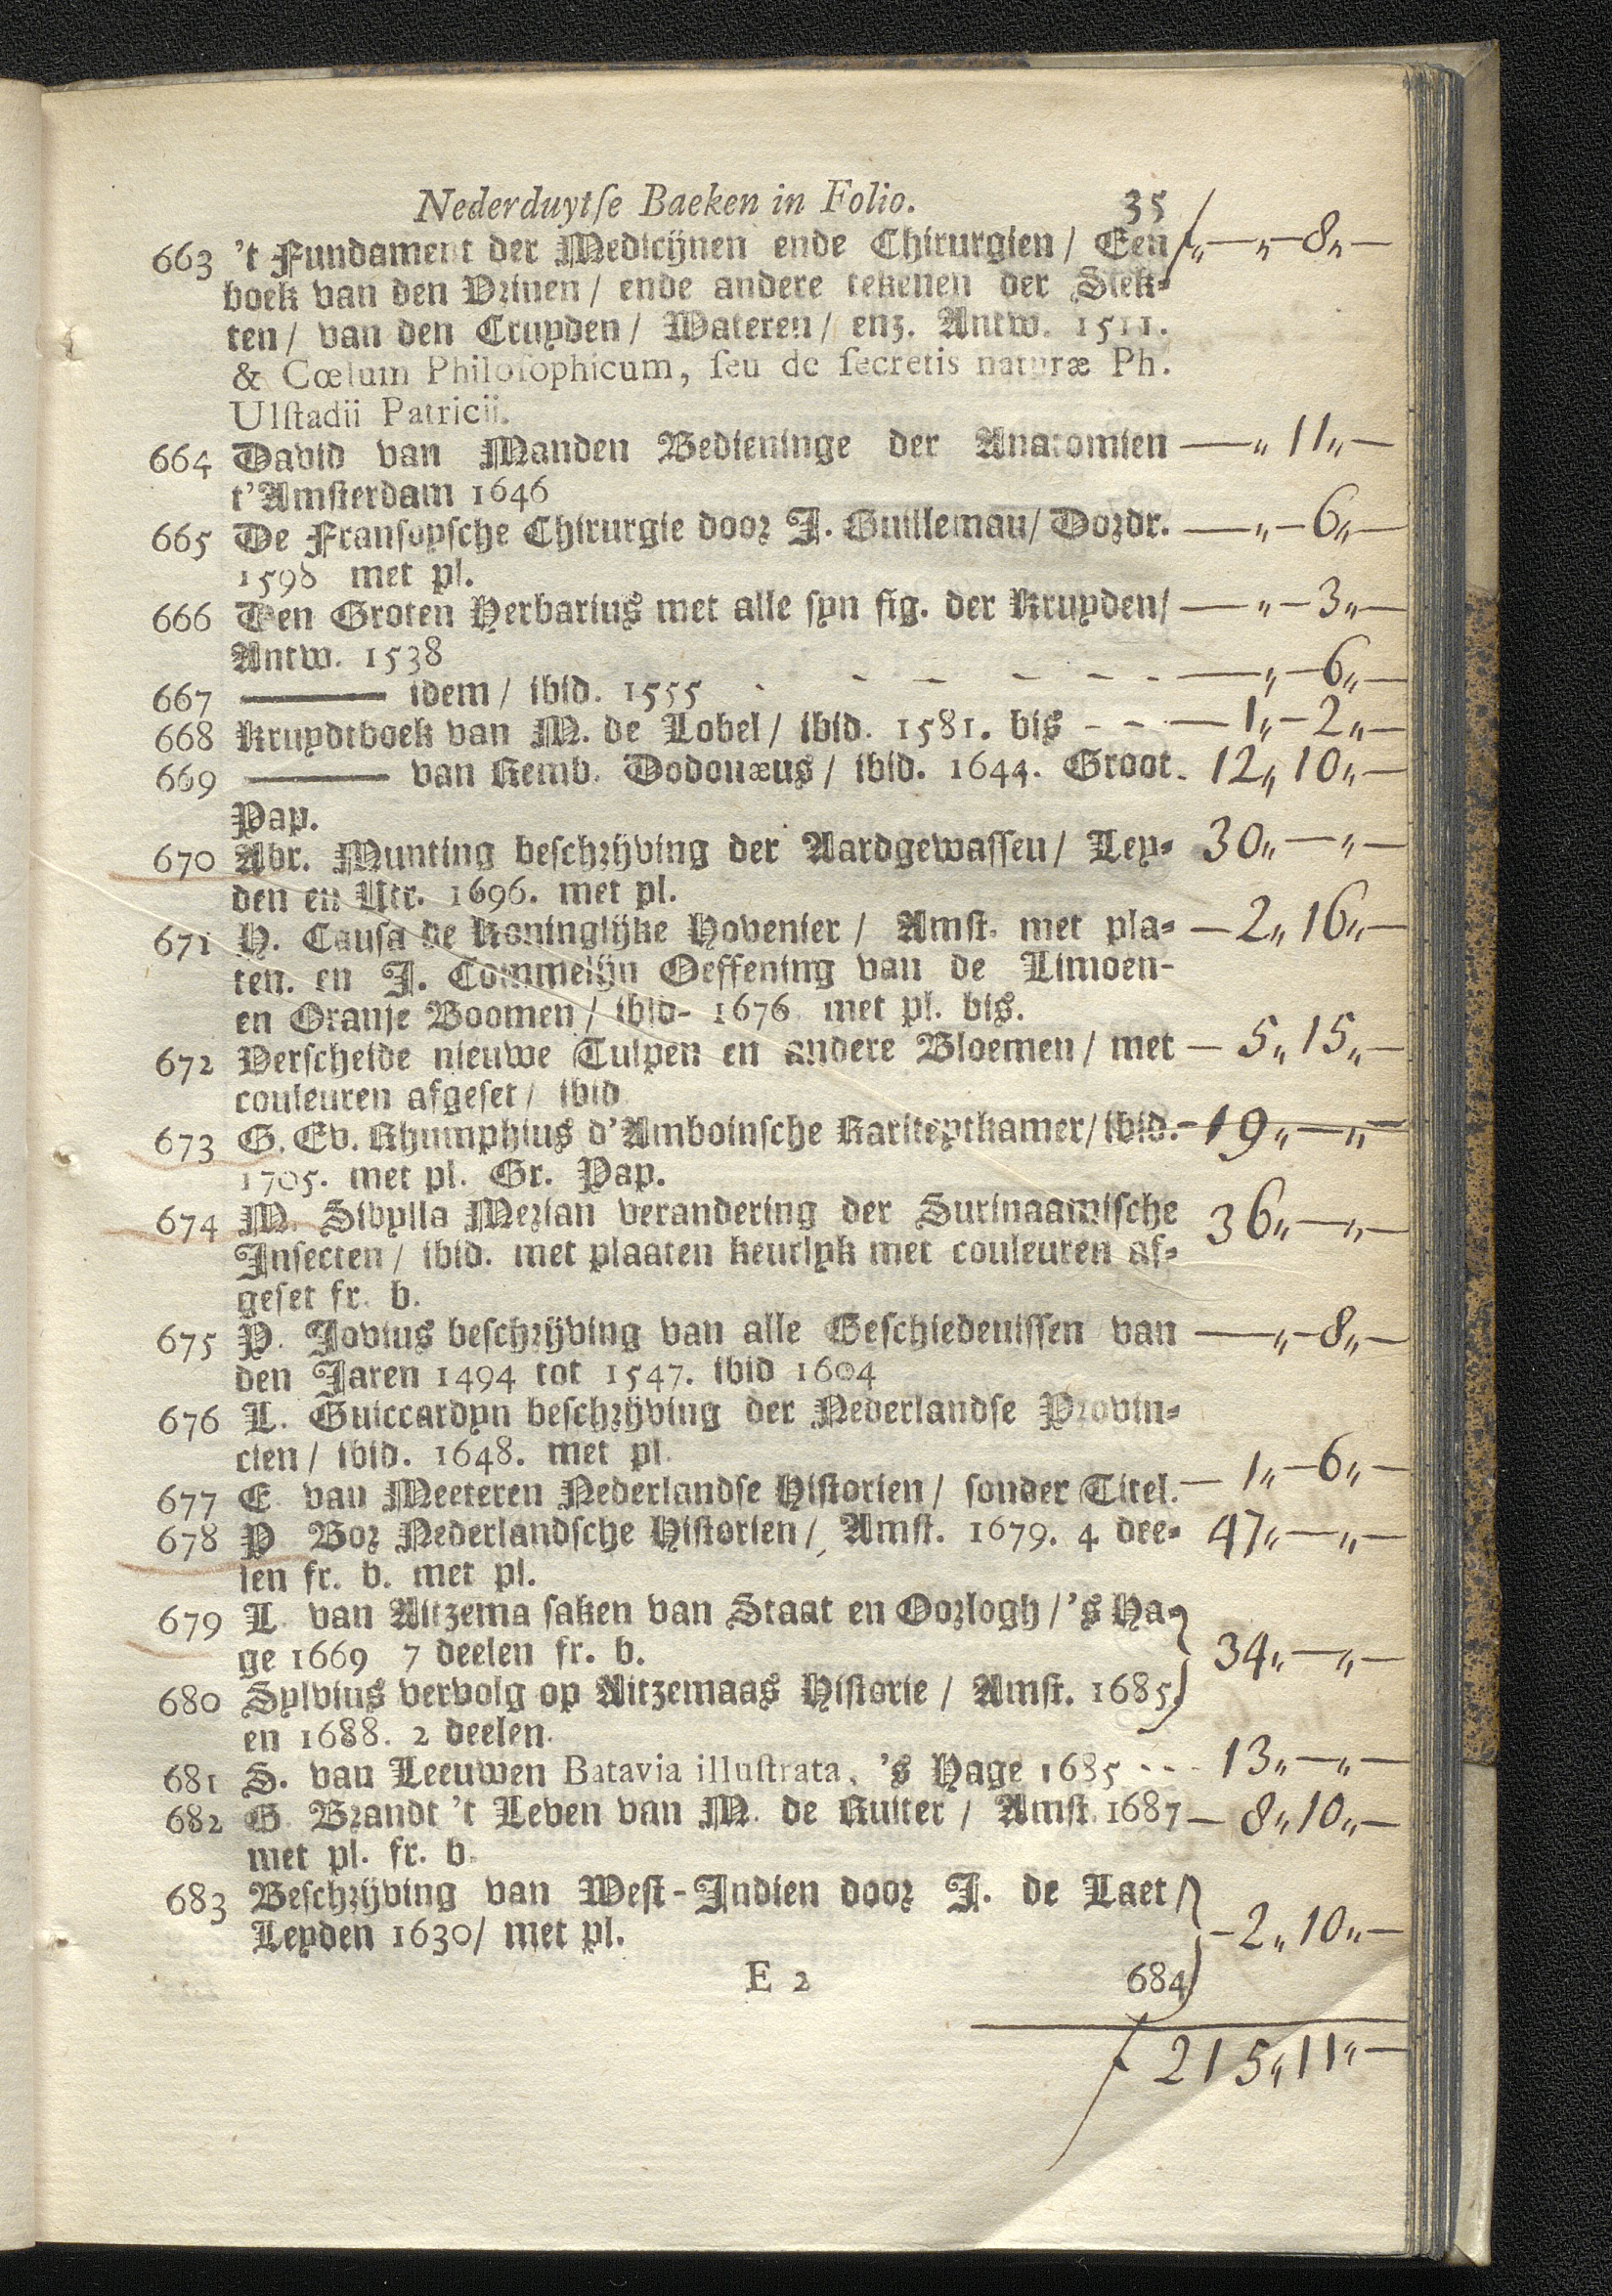 Nederduytſe Baeken in Folio. 35
663 't Fundament der Medicijnen ende Chirurgien / Een ƒ „ — „ — 8 „ —
boek van den Vrinen / ende andere tekenen der Siek-
ten / van den Cruyden / Wateren / enz. Antw. 1511.
& Cœlum Philoſophicum, ſeu de ſecretis naturæ Ph.
Ulſtadii Patricii.
664 David van Manden Bedieninge der Anatomien — „ 11 „ —
t'Amſterdam 1646
665 De Franſoyſche Chirurgie door J. Guillemau / Dordr. — „ — 6 „ —
1598 met pl.
666 Den Groten Herbarius met alle ſyn fig. der Kruyden / — „ — 3 „ —
Antw. 1538
667 —— idem / ibid. 1555 - - - - - - — „ — 6 „ —
668 Kruydtboek van M. de Lobel / ibid. 1581. bis - - — 1 „ — 2 „ —
669 —— van Remb. Dodouæus / ibid. 1644. Groot. 12 „ 10 „ —
Pap.
670 Abr. Munting beſchrijving der Aardgewaſſeu / Ley- 30 „ — „ —
den en Utr. 1696. met pl.
671 H. Cauſa de Koninglijke Hovenier / Amſt. met pla- — 2 „ 16 „ —
ten. en J. Commelijn Oeffening van de Limoen-
en Oranje Boomen / ibid- 1676. met pl. bis.
672 Verſcheide nieuwe Tulpen en andere Bloemen / met — 5 „ 15 „ —
couleuren afgeſet / ibid
673 G. Ev. Rhumphius d'Amboinſche Rariteytkamer / ibid. - 19 „ — „ —
1705. met pl. Gr. Pap.
674 M. Sibylla Merian verandering der Surinaamiſche 36 „ — „ —
Inſecten / ibid. met plaaten keurlyk met couleuren af-
geſet fr. b.
675 P. Jovius beſchrijving van alle Geſchiedeniſſen van — „ — 8 „ —
den Jaren 1494 tot 1547. ibid 1604
676 L. Guiccardyn beſchrijving der Nederlandſe Provin-
cien / ibid. 1648. met pl.
677 E. van Meeteren Nederlandſe Hiſtorien / ſonder Titel. — 1 „ — 6 „ —
678 P Bor Nederlandſche Hiſtorien /, Amſt. 1679. 4 dee- 47 „ — „ —
len fr. b. met pl.
679 L. van Aitzema ſaken van Staat en Oorlogh / 's Ha-
ge 1669 7 deelen fr. b. 34 „ — „ —
680 Sylvius vervolg op Aitzemaas Hiſtorie / Amſt. 1685.
en 1688. 2 deelen.
681 S. van Leeuwen Batavia illuſtrata, 's Hage 1685 - - - 13 „ — „ —
682 G. Brandt 't Leven van M. de Ruiter / Amſt. 1687 — 8 „ 10 „ —
met pl. fr. b.
683 Beſchrijving van Weſt-Indien door J. de Laet /
Leyden 1630 / met pl. — 2 „ 10 „ —
E 2 684
ƒ 215 „ 11 „ —